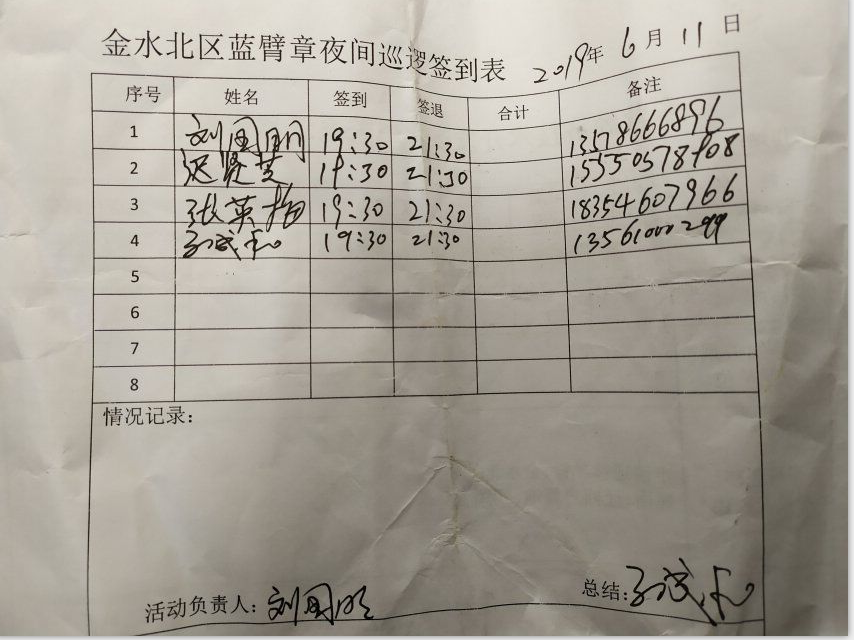 金水北区蓝臂章夜间巡逻签到表 2019年6月11日
序号 姓名 签到 签退 合计 备注
1 刘国明 19:30 21:30 13578666896
2 迟贤芝 19:30 21:30
3 张英梅 19:30 21:30 18354607966
4 19:30 21:30 13561000299
5
6
7
8
情况记录：
活动负责人：刘国明 总结：